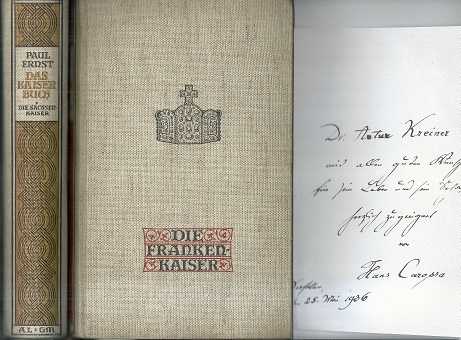 PAUL
ERNST
DAS
KAISER
BUCH
DIE SACHSEN
KAISER
AL·GM
DIE
FRANKEN-
KAISER
Dr. Artur Kreiner
mit allen guten Wünsch
für sein Leben und sein
herzlich zugeeignet
von
Hans Carossa
25. Mai 1936